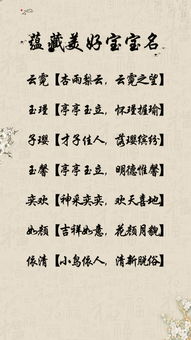 蕴藏美好宝宝名
云霓【杏雨梨云，云霓之望】
玉瑾【亭亭玉立，怀瑾握瑜】
子璎【才子佳人，璎珞缤纷】
玉馨【亭亭玉立，明德惟馨】
奕欢【神采奕奕，欢天喜地】
如颜【吉祥如意，花颜月貌】
依清【小鸟依人，清新脱俗】